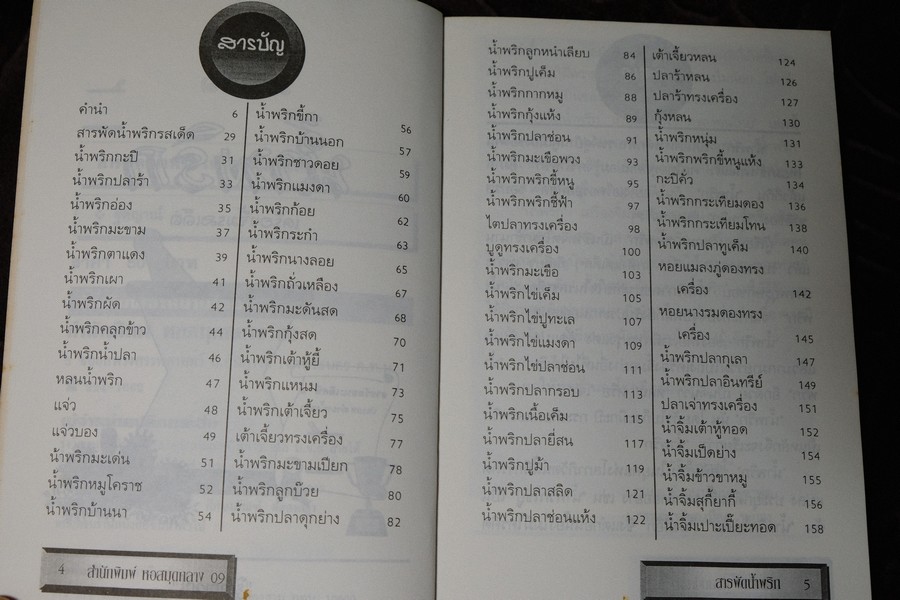 สารบัญ
คำนำ 6
สารพัดน้ำพริกรสเด็ด 29
น้ำพริกกะปิ 31
น้ำพริกปลาร้า 33
น้ำพริกอ่อง 35
น้ำพริกมะขาม 37
น้ำพริกตาแดง 39
น้ำพริกเผา 41
น้ำพริกผัด 42
น้ำพริกคลุกข้าว 44
น้ำพริกน้ำปลา 46
หลนน้ำพริก 47
แจ่ว 48
แจ่วบอง 49
น้ำพริกมะเด่น 51
น้ำพริกหมูโคราช 52
น้ำพริกบ้านนา 54
น้ำพริกขี้กา 56
น้ำพริกบ้านนอก 57
น้ำพริกชาวดอย 59
น้ำพริกแมงดา 60
น้ำพริกก้อย 62
น้ำพริกระกำ 63
น้ำพริกนางลอย 65
น้ำพริกถั่วเหลือง 67
น้ำพริกมะดันสด 68
น้ำพริกกุ้งสด 70
น้ำพริกเต้าหู้ยี้ 71
น้ำพริกแหนม 73
น้ำพริกเต้าเจี้ยว 75
เต้าเจี้ยวทรงเครื่อง 77
น้ำพริกมะขามเปียก 78
น้ำพริกลูกบ๊วย 80
น้ำพริกปลาดุกย่าง 82
4 สำนักพิมพ์ หอสมุดกลาง 09
น้ำพริกลูกหนำเลียบ 84
น้ำพริกปูเค็ม 86
น้ำพริกกากหมู 88
น้ำพริกกุ้งแห้ง 89
น้ำพริกปลาช่อน 91
น้ำพริกมะเขือพวง 93
น้ำพริกพริกขี้หนู 95
น้ำพริกพริกชี้ฟ้า 97
ไตปลาทรงเครื่อง 98
บูดูทรงเครื่อง 100
น้ำพริกมะเขือ 103
น้ำพริกไข่เค็ม 105
น้ำพริกไข่ปูทะเล 107
น้ำพริกไข่แมงดา 109
น้ำพริกไข่ปลาช่อน 111
น้ำพริกปลากรอบ 113
น้ำพริกเนื้อเค็ม 115
น้ำพริกปลายี่สน 117
น้ำพริกปูม้า 119
น้ำพริกปลาสลิด 121
น้ำพริกปลาช่อนแห้ง 122
เต้าเจี้ยวหลน 124
ปลาร้าหลน 126
ปลาร้าทรงเครื่อง 127
กุ้งหลน 130
น้ำพริกหนุ่ม 131
น้ำพริกพริกขี้หนูแห้ง 133
กะปิคั่ว 134
น้ำพริกกระเทียมดอง 136
น้ำพริกกระเทียมโทน 138
น้ำพริกปลาทูเค็ม 140
หอยแมลงภู่ดองทรง
เครื่อง 142
หอยนางรมดองทรง
เครื่อง 145
น้ำพริกปลากุเลา 147
น้ำพริกปลาอินทรีย์ 149
ปลาเจ่าทรงเครื่อง 151
น้ำจิ้มเต้าหู้ทอด 152
น้ำจิ้มเป็ดย่าง 154
น้ำจิ้มข้าวขาหมู 155
น้ำจิ้มสุกี้ยากี้ 156
น้ำจิ้มเปาะเปี๊ยะทอด 158
สารพัดน้ำพริก 5